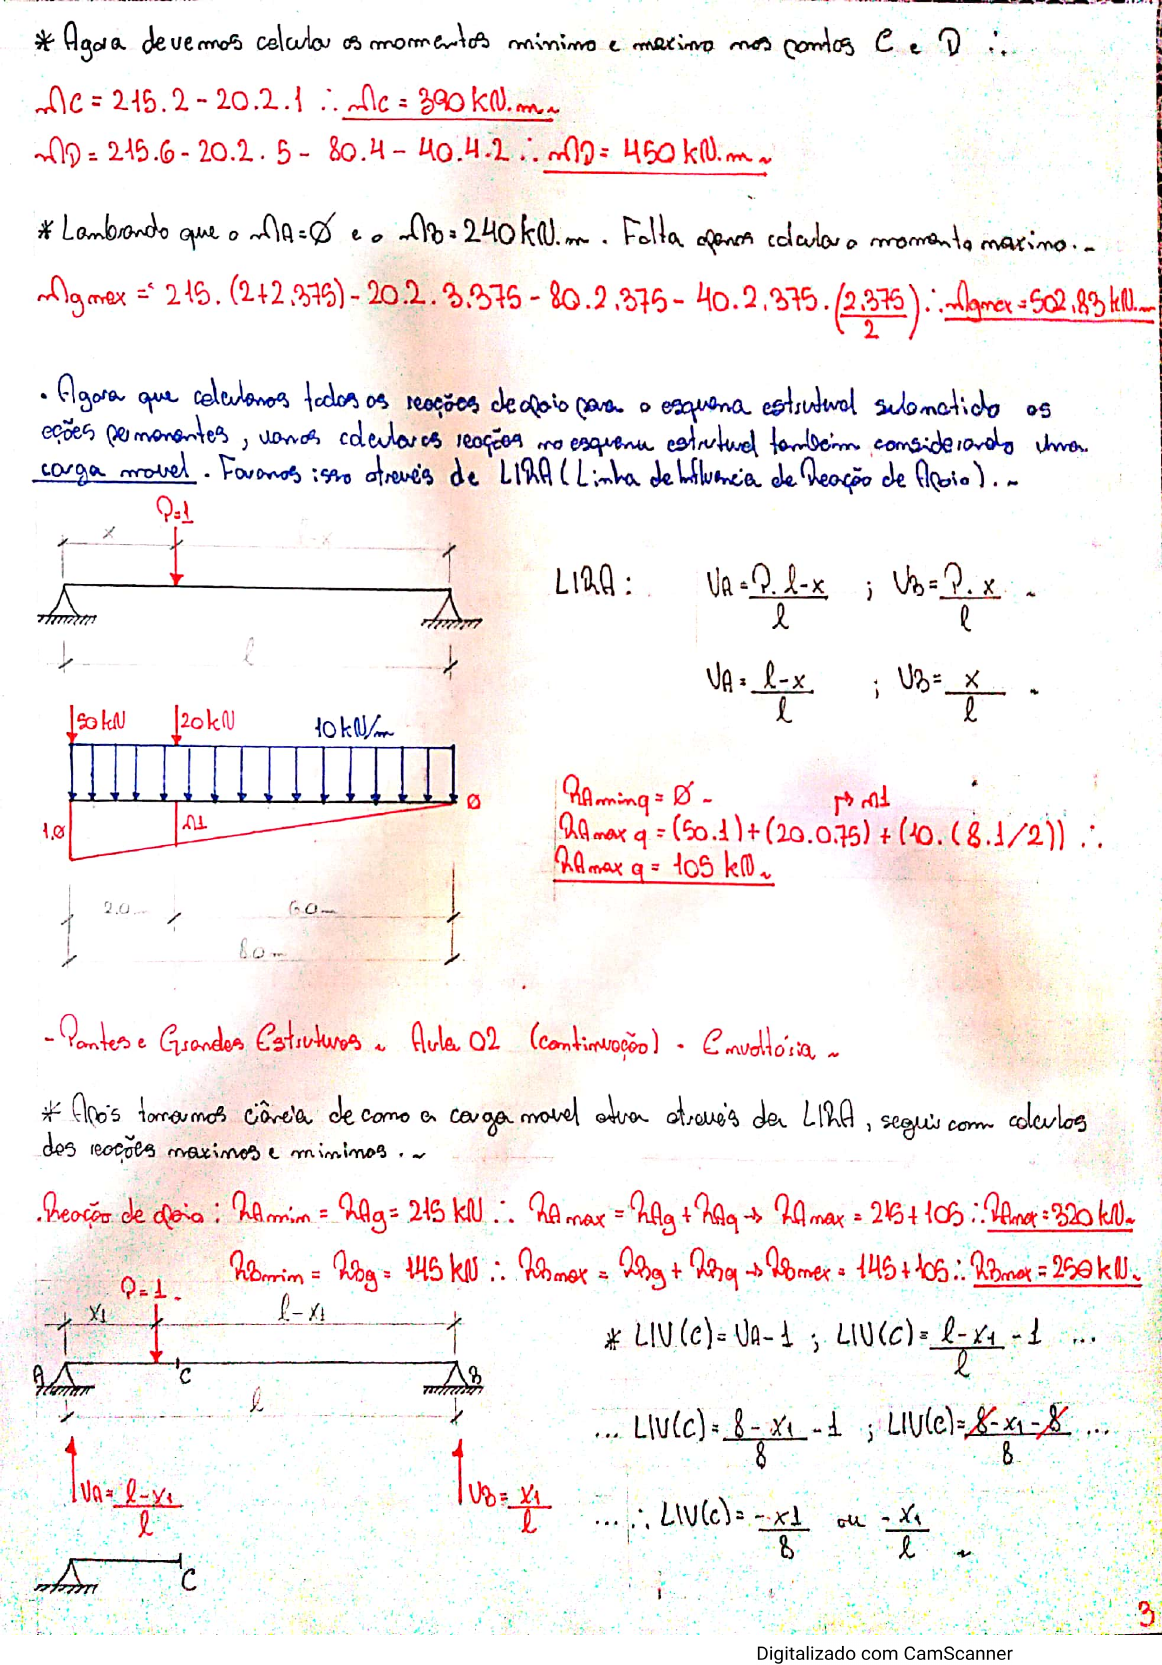 * Agora devemos calcular os momentos minimo e maximo nos pontos C e D ∴
MC = 215.2 - 20.2.1 ∴ MC = 390 kN.m
MD = 215.6 - 20.2.5 - 80.4 - 40.4.2 ∴ MD = 450 kN.m
* Lembrando que o MA=Ø e o MB=240 kN.m. Falta apenas calcular o momento maximo.
Mgmax = 215.(2+2,375) - 20.2.3,375 - 80.2,375 - 40.2,375.(2,375/2) ∴ Mgmax = 502,83 kN.m
. Agora que calculamos todas as reações de apoio para o esquema estrutural submetido as
ações permanentes, vamos calcular as reações no esquema estrutural também considerando uma
carga movel. Faremos isso através de LIRA (Linha de Influencia de Reação de Apoio).
P=1
x
l-x
l
LIRA: VA = P. l-x / l ; VB = P. x / l
VA = l-x / l ; VB = x / l
50 kN 20 kN 10 kN/m
1.0 M1 Ø
2.0m 6.0m
8.0m
RAminq = Ø
↱ M1
RAmax q = (50.1)+(20.0,75)+(10.(8.1/2)) ∴
RAmax q = 105 kN
- Pontes e Grandes Estruturas ~ Aula 02 (continuação) - Envoltória ~
* Após tomarmos ciência de como a carga movel atua através da LIRA, seguir com calculos
das reações maximas e minimas.
.Reação de apoio: RAmin = RAg = 215 kN ∴ RAmax = RAg + RAq → RAmax = 215+105 ∴ RAmax = 320 kN
RBmin = RBg = 145 kN ∴ RBmax = RBg + RBq → RBmax = 145+105 ∴ RBmax = 250 kN
P=1
x1 l-x1
A C B
l
VA = l-x1 / l
VB = x1 / l
C
* LIV(C) = VA-1 ; LIV(C) = l-x1 / l - 1 ...
... LIV(C) = 8-x1 / 8 - 1 ; LIV(C) = 8-x1-8 / 8 ...
... ∴ LIV(C) = -x1 / 8 ou -x1 / l
3
Digitalizado com CamScanner